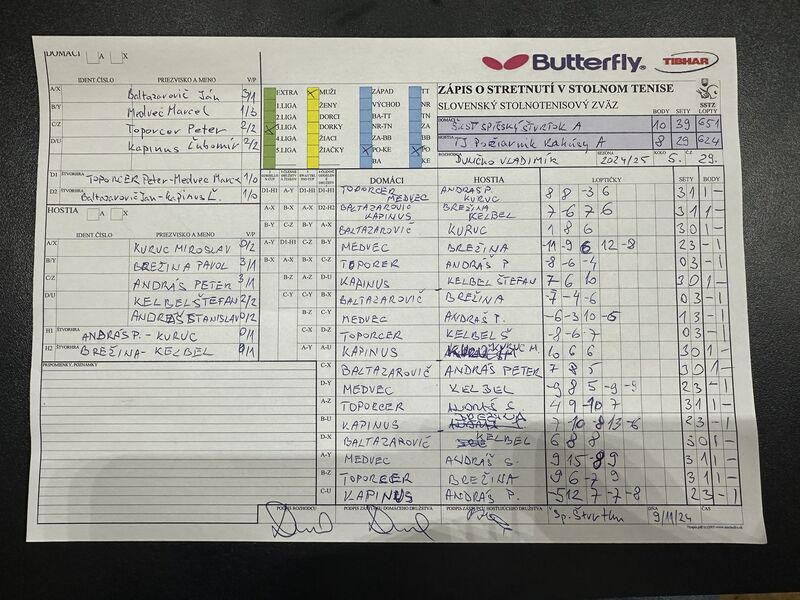 DOMÁCI A X
IDENT.ČÍSLO PRIEZVISKO A MENO V/P
A/X Baltazarovič Ján 3/1
B/Y Medveć Marcel 1/3
C/Z Toporcer Peter 2/2
D/U Kapinus Ľubomír 2/2
D1 ŠTVORHRA TOPORCER Peter-Medvec Marcel 1/0
D2 ŠTVORHRA Baltazarovič Ján-Kapinus Ľ. 1/0
HOSTIA A X
IDENT.ČÍSLO PRIEZVISKO A MENO V/P
A/X KURUC MIROSLAV 0/2
B/Y BREŽINA PAVOL 3/1
C/Z ANDRÁŠ PETER 3/1
D/U KELBEL ŠTEFAN 2/2
ANDRÁŠ STANISLAV 0/2
H1 ŠTVORHRA ANDRÁŠ P. - KURUC 0/1
H2 ŠTVORHRA BREŽINA - KELBEL 0/1
PRIPOMIENKY, POZNÁMKY
Butterfly TIBHAR
EXTRA MUŽI ZÁPAD TT
1.LIGA ŽENY VÝCHOD NR
2.LIGA DORCI BA-TT TN
3.LIGA DORKY NR-TN ZA
4.LIGA ŽIACI ZA-BB BB
5.LIGA ŽIAČKY PO-KE PO
BA KE
ZÁPIS O STRETNUTÍ V STOLNOM TENISE
SLOVENSKÝ STOLNOTENISOVÝ ZVÄZ SSTZ
DOMÁCI BODY SETY LOPTY
ŠKST SPIŠSKÝ ŠTVRTOK A 10 39 651
HOSTIA TJ Požiarnik A 8 29 624
ROZHODCA VLADIMÍR SEZÓNA 2024/25 KOLO 5. Č. 29.
DOMÁCI HOSTIA LOPTIČKY SETY BODY
D1-H1 TOPORCER MEDVEC ANDRÁŠ P. KURUC 8 8 -3 6 3 1 1 -
D2-H2 BALTAZAROVIČ KAPINUS BREŽINA KELBEL 7 -6 7 6 3 1 1 -
A-X BALTAZAROVIČ KURUC 1 8 6 3 0 1 -
B-Y MEDVEC BREŽINA -11 -9 6 12 -8 2 3 - 1
C-Z TOPORCER ANDRÁŠ P -8 -6 -4 0 3 - 1
D-U KAPINUS KELBEL ŠTEFAN 7 6 10 3 0 1 -
BALTAZAROVIČ BREŽINA -7 -4 -6 0 3 - 1
MEDVEC ANDRÁŠ P. -6 -3 10 -5 1 3 - 1
TOPORCER KELBEL Š -8 -6 -7 0 3 - 1
KAPINUS KURUC M. 10 6 6 3 0 1 -
C-X BALTAZAROVIČ ANDRÁŠ PETER 7 8 5 3 0 1 -
D-Y MEDVEC KELBEL -9 8 5 -9 -9 2 3 - 1
A-Z TOPORCER ANDRÁŠ S. 4 9 -10 7 3 1 1 -
B-U KAPINUS BREŽINA 7 -10 -8 13 -6 2 3 - 1
D-X BALTAZAROVIČ KELBEL 6 8 8 3 0 1 -
A-Y MEDVEC ANDRÁŠ S. 9 15 -8 9 3 1 1 -
B-Z TOPORCER BREŽINA 9 6 -7 9 3 1 1 -
C-U KAPINUS ANDRÁŠ P. -5 12 7 -7 -8 2 3 - 1
PODPIS ROZHODCU PODPIS ZÁSTUPCU DOMÁCEHO DRUŽSTVA PODPIS ZÁSTUPCU HOSŤUJÚCEHO DRUŽSTVA V Sp. Štvrtku DŇA 9/11/24 ČAS